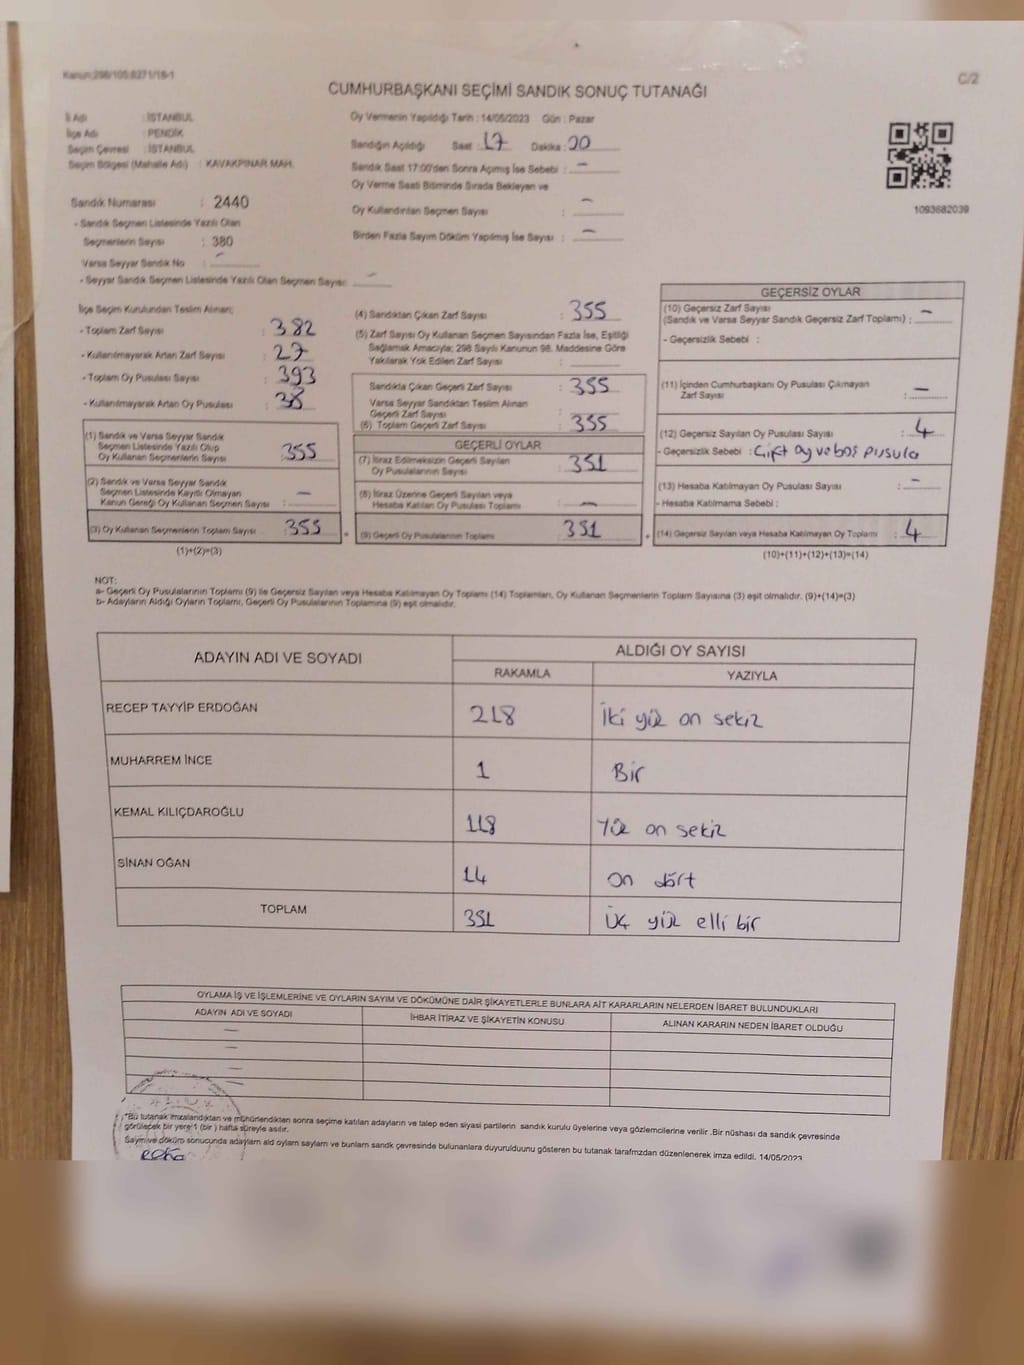 Kanun:298/105:6271/16-1
C/2
CUMHURBAŞKANI SEÇİMİ SANDIK SONUÇ TUTANAĞI
İl Adı : İSTANBUL
İlçe Adı : PENDİK
Seçim Çevresi : İSTANBUL
Seçim Bölgesi (Mahalle Adı) : KAVAKPINAR MAH.
Sandık Numarası : 2440
- Sandık Seçmen Listesinde Yazılı Olan
Seçmenlerin Sayısı : 380
Varsa Seyyar Sandık No : –
- Seyyar Sandık Seçmen Listesinde Yazılı Olan Seçmen Sayısı: –
Oy Vermenin Yapıldığı Tarih : 14/05/2023 Gün : Pazar
Sandığın Açıldığı Saat : 17 Dakika : 20
Sandık Saat 17:00'den Sonra Açımış İse Sebebi : –
Oy Verme Saati Bitiminde Sırada Bekleyen ve
Oy Kullandırılan Seçmen Sayısı : –
Birden Fazla Sayım Döküm Yapılmış İse Sayısı : –
1093682039
İlçe Seçim Kurulundan Teslim Alınan;
- Toplam Zarf Sayısı : 382
- Kullanılmayarak Artan Zarf Sayısı : 27
- Toplam Oy Pusulası Sayısı : 393
- Kullanılmayarak Artan Oy Pusulası : 38
(1) Sandık ve Varsa Seyyar Sandık
Seçmen Listesinde Yazılı Olup
Oy Kullanan Seçmenlerin Sayısı : 355
(2) Sandık ve Varsa Seyyar Sandık
Seçmen Listesinde Kayıtlı Olmayan
Kanun Gereği Oy Kullanan Seçmen Sayısı : –
(3) Oy Kullanan Seçmenlerin Toplam Sayısı : 355
(1)+(2)=(3)
(4) Sandıktan Çıkan Zarf Sayısı : 355
(5) Zarf Sayısı Oy Kullanan Seçmen Sayısından Fazla İse, Eşitliği
Sağlamak Amacıyla; 298 Sayılı Kanunun 98. Maddesine Göre
Yakılarak Yok Edilen Zarf Sayısı :
Sandıkta Çıkan Geçerli Zarf Sayısı : 355
Varsa Seyyar Sandıktan Teslim Alınan
Geçerli Zarf Sayısı :
(6) Toplam Geçerli Zarf Sayısı : 355
GEÇERLİ OYLAR
(7) İtiraz Edilmeksizin Geçerli Sayılan
Oy Pusulalarının Sayısı : 351
(8) İtiraz Üzerine Geçerli Sayılan veya
Hesaba Katılan Oy Pusulası Toplamı : –
(9) Geçerli Oy Pusulalarının Toplamı : 351
GEÇERSİZ OYLAR
(10) Geçersiz Zarf Sayısı
(Sandık ve Varsa Seyyar Sandık Geçersiz Zarf Toplamı) : –
- Geçersizlik Sebebi :
(11) İçinden Cumhurbaşkanı Oy Pusulası Çıkmayan
Zarf Sayısı : –
(12) Geçersiz Sayılan Oy Pusulası Sayısı : 4
- Geçersizlik Sebebi : Çift oy ve boş pusula
(13) Hesaba Katılmayan Oy Pusulası Sayısı : –
- Hesaba Katılmama Sebebi :
(14) Geçersiz Sayılan veya Hesaba Katılmayan Oy Toplamı : 4
(10)+(11)+(12)+(13)=(14)
NOT:
a- Geçerli Oy Pusulalarının Toplamı (9) ile Geçersiz Sayılan veya Hesaba Katılmayan Oy Toplamı (14) Toplamları, Oy Kullanan Seçmenlerin Toplam Sayısına (3) eşit olmalıdır. (9)+(14)=(3)
b- Adayların Aldığı Oyların Toplamı, Geçerli Oy Pusulalarının Toplamına (9) eşit olmalıdır.
ADAYIN ADI VE SOYADI
ALDIĞI OY SAYISI
RAKAMLA YAZIYLA
RECEP TAYYİP ERDOĞAN 218 İki yüz on sekiz
MUHARREM İNCE 1 Bir
KEMAL KILIÇDAROĞLU 118 Yüz on sekiz
SİNAN OĞAN 14 On dört
TOPLAM 351 Üç yüz elli bir
OYLAMA İŞ VE İŞLEMLERİNE VE OYLARIN SAYIM VE DÖKÜMÜNE DAİR ŞİKAYETLERLE BUNLARA AİT KARARLARIN NELERDEN İBARET BULUNDUKLARI
ADAYIN ADI VE SOYADI İHBAR İTİRAZ VE ŞİKAYETİN KONUSU ALINAN KARARIN NEDEN İBARET OLDUĞU
*Bu tutanak imzalandıktan ve mühürlendikten sonra seçime katılan adayların ve talep eden siyasi partilerin sandık kurulu üyelerine veya gözlemcilerine verilir .Bir nüshası da sandık çevresinde
görülecek bir yere 1 (bir ) hafta süreyle asılır.
Sayım ve döküm sonucunda adayların ald oyların sayların ve bunların sandk çevresinde bulunanlara duyurulduunu gösteren bu tutanak tarafmzdan düzenlenerek imza edildi. 14/05/2023